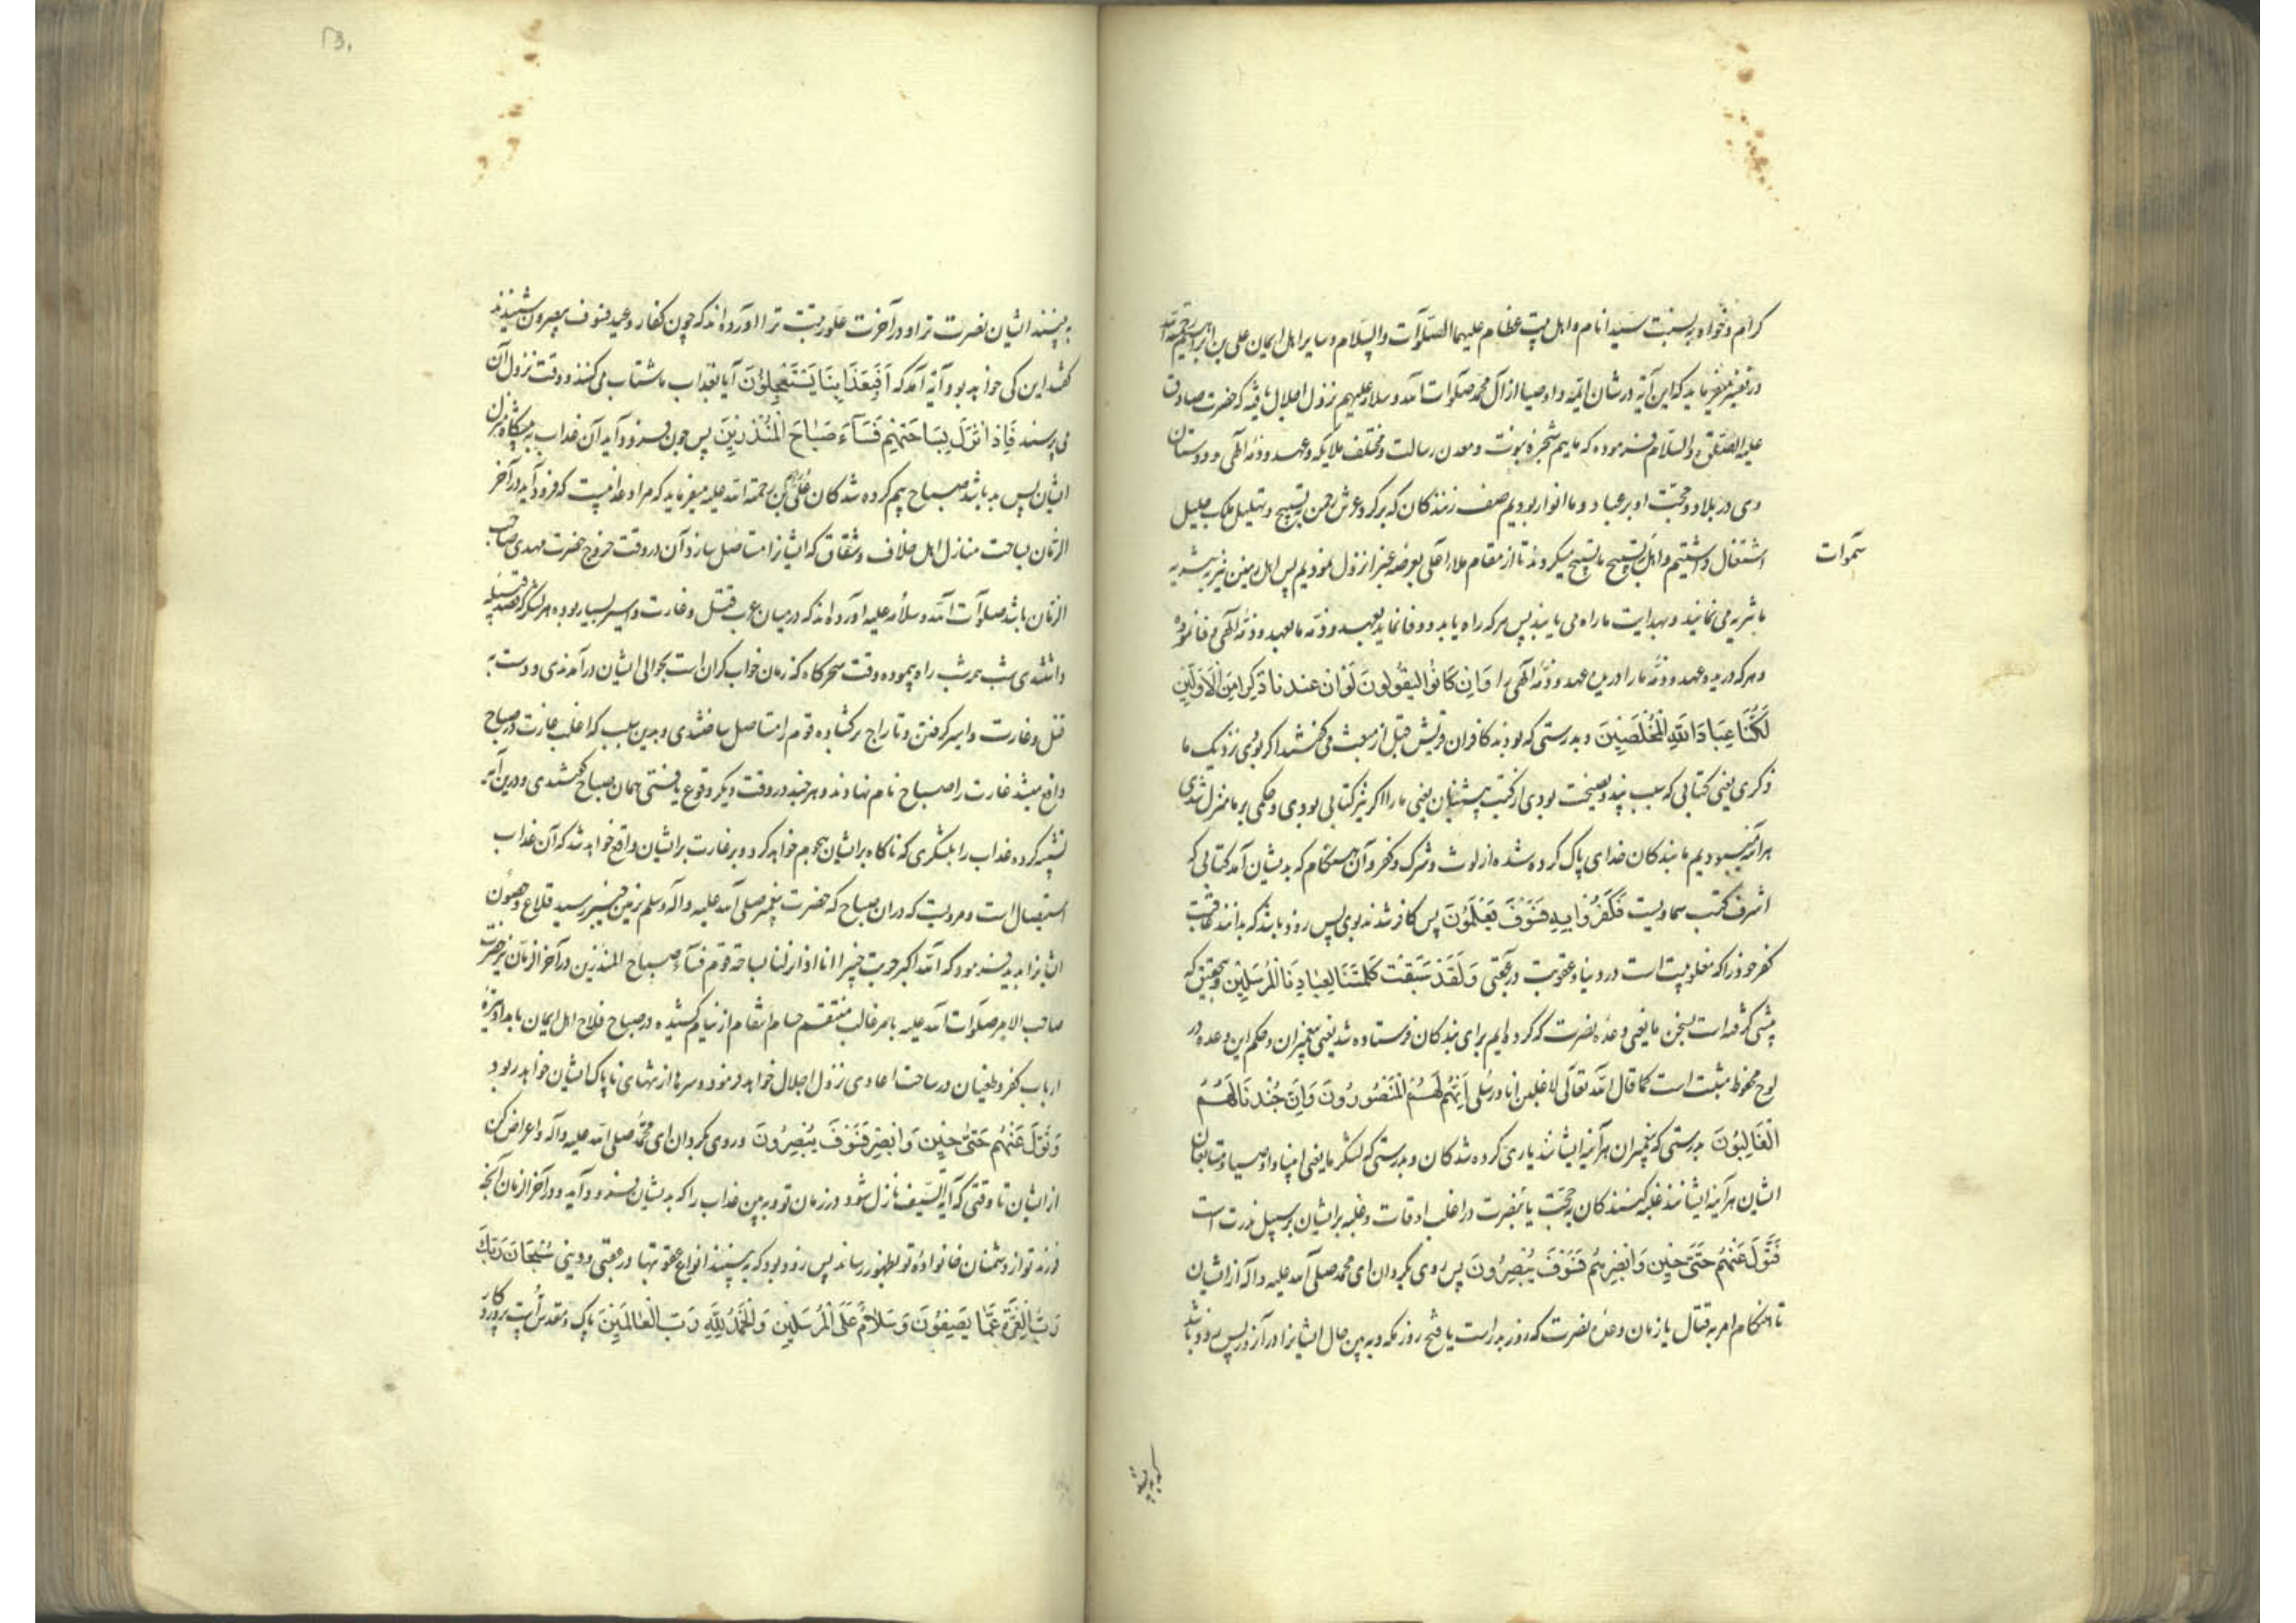 کرام و خواه به نسبت سید انام و اهل بیت عظام علیهما الصلوات والسلام و سایر اهل ایمان علی بن ابراهیم رحمة الله
در تفسیر میفرماید که این آیه در شان ایمه و اوصیا از آل محمد صلوات الله و سلامه علیهم نزول اجلال یافته که حضرت صادق
علیه الصلوة والسلام فرموده که ماییم شجره نبوت و معدن رسالت و مختلف ملایکه و عهد و ذمه الهی و دوستان
وی در بلاد و محبت او بر عباد و ما انوار بودیم صف زنندگان که بر گرد عرش رحمن به تسبیح و تهلیل ملک جلیل
اشتغال داشتیم و اهل تسبیح ما تسبیح میکردند تا از مقام ملا اعلی بعرصه غبرا نزول نمودیم پس اهل زمین نیز به تسبیح
سموات
ما می نمایند و بهدایت ما راه می یابند پس هر که راه یابد و وفا نماید بعهد و ذمه ما بعهد و ذمه الهی وفا نموده
و هر که درید عهد و ذمه ما را درید عهد و ذمه الهی را وَاِن كَانُوا لَيَقُولُونَ لَوْ اَنَّ عندنا ذِكرا مِنَ الْاَوَّلِينَ
لَكُنَّا عِبَادَ اللَّهِ الْمُخْلَصِينَ و بدرستی که بودند کافران قریش قبل از مبعث می گفتند اگر بودی نزدیک ما
ذکری یعنی کتابی که سبب پند و نصیحت بودی از کتب پیشینیان یعنی ما را اگر نیز کتابی بودی و حکمی بر ما منزل شدی
هر آینه میبودیم ما بندکان خدای پاک کرده شده از لوث و شرک و کفر و آن هنگام که بدیشان آمد کتابی که
اشرف کتب سماویست فَكَفَرُوا بِهِ فَسَوْفَ يَعْلَمُونَ پس کافر شدند بوی پس زود باشد که بدانند عاقبت
کفر خود را که مغلوبیت است در دنیا و عقوبت در عقبی وَلَقَدْ سَبَقَتْ كَلِمَتُنَا لِعِبَادِنَا الْمُرْسَلِينَ و بتحقیق که
پیشی گرفته است سخن ما یعنی وعده نصرت که کرده ایم برای بندکان فرستاده شد یعنی پیغمبران و حکم این وعده در
لوح محفوظ مثبت است کما قال الله تعالی لاغلبن انا ورسلی اِنَّهُمْ لَهُمُ الْمَنْصُورُونَ وَاِنَّ جُنْدَنَا لَهُمُ
الْغَالِبُونَ بدرستی که پیغمبران هر آینه ایشانند یاری کرده شدکان و بدرستی که لشکر ما یعنی انبیا و اوصیا و متابعان
ایشان هر آینه ایشانند غلبه کنندکان بحجت یا بنصرت در اغلب اوقات و غلبه بر ایشان بر سبیل ندرت است
فَتَوَلَّ عَنْهُمْ حَتَّى حِينٍ وَاَبْصِرْهُمْ فَسَوْفَ يُبْصِرُونَ پس روی بگردان ای محمد صلی الله علیه و آله از ایشان
تا هنگام امر به قتال یا زمان وعده نصرت که روز بدر است یا فتح روز مکه و ببین حال ایشانرا در آن روز پس زود باشد
که بینند
به بینند ایشان نصرت ترا و در آخرت علو رتبت ترا آورده اند که چون کفار وعید فسوف یبصرون شنیدند
گفتند این کی خواهد بود آیه آمد که اَفَبِعَذَابِنَا يَسْتَعْجِلُونَ آیا بعذاب ما شتاب می کنند و وقت نزول آن
می پرسند فَاِذَا نَزَلَ بِسَاحَتِهِمْ فَسَاءَ صَبَاحُ الْمُنْذَرِينَ پس چون فرود آید آن عذاب به پیشگاه منزل
ایشان پس بد باشد صباح بیم کرده شدکان علی بن ابراهیم رحمة الله علیه میفرماید که مراد عذابیست که فرود آید در آخر
الزمان بساحت منازل اهل خلاف و شقاق که ایشانرا مستاصل سازد آن در وقت خروج حضرت مهدی صاحب
الزمان باشد صلوات الله و سلامه علیه آورده اند که در میان عرب قتل و غارت و اسیر بسیار بوده هر لشکر که قصد قبیله
داشتندی شب همه شب راه پیموده وقت سحرگاه که زمان خواب گران است بحوالی ایشان در آمدندی و دست به
قتل و غارت و اسیر گرفتن و تاراج برگشاده قوم را مستاصل ساختندی و بدین سبب که اغلب غارت در صباح
واقع میشد غارت را صباح نام نهادند و هر چند در وقت دیگر وقوع یافتی همان صباح گفتندی و درین آیه
تشبیه کرده عذاب را بلشکری که ناگاه بر ایشان هجوم خواهد کرد و بر غارت بر ایشان واقع خواهد شد که آن عذاب
استیصال است و مرویست که در ان صباح که حضرت پیغمبر صلی الله علیه و آله و سلم بزمین خیبر رسید قلاع و حصون
ایشانرا بدید فرمود که الله اکبر خربت خیبر انا اذا نزلنا بساحة قوم فساء صباح المنذرین در آخر الزمان نیز حضرت
صاحب الامر صلوات الله علیه بامر غالب منتقم حسام انتقام از نیام کشیده در صباح فلاح اهل ایمان
ارباب کفر و طغیان در ساحت اعادی نزول اجلال خواهد فرمود و سرها از تنهای ناپاک ایشان خواهد ربود
وَتَوَلَّ عَنْهُمْ حَتَّى حِينٍ وَاَبْصِرْ فَسَوْفَ يُبْصِرُونَ و روی بگردان ای محمد صلی الله علیه و آله و اعراض کن
از ایشان تا وقتی که آیة السیف نازل شود در زمان تو و ببین عذاب را که بدیشان فرود آید و در آخر الزمان آنچه
فرزند تو از دشمنان خانواده تو بظهور رساند پس زود بود که به بینند انواع عقوبتها در عقبی و دینی سُبْحَانَ رَبِّكَ
رَبِّ الْعِزَّةِ عَمَّا يَصِفُونَ وَسَلَامٌ عَلَى الْمُرْسَلِينَ وَالْحَمْدُ لِلَّهِ رَبِّ الْعَالَمِينَ پاک و مقدس است پروردگار